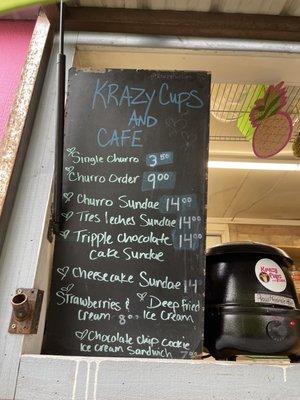 KRAZY CUPS
AND
CAFE
Single Churro 3.50
Churro Order 9.00
Churro Sundae 14.00
Tres leches Sundae 14.00
Tripple chocolate 14.00
Cake Sundae
Cheesecake Sundae 14
Strawberries & Cream 8.00
Deep Fried Ice Cream
Chocolate chip cookie
Ice Cream Sandwich 7.00
KRAZY CUPS